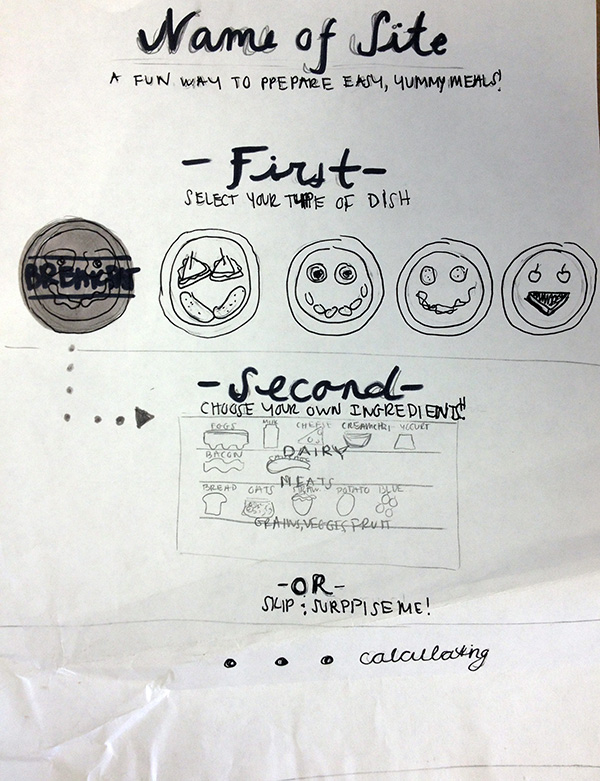 Name of Site
A FUN WAY TO PREPARE EASY, YUMMY MEALS!
-First-
SELECT YOUR TYPE OF DISH
BREAKFAST
-Second-
CHOOSE YOUR OWN INGREDIENTS!
EGGS MILK CHEESE YOGURT
DAIRY
BACON
MEATS
BREAD OATS POTATO BLUE
GRAINS, VEGGIES, FRUIT
-OR-
SKIP; SURPRISE ME!
calculating